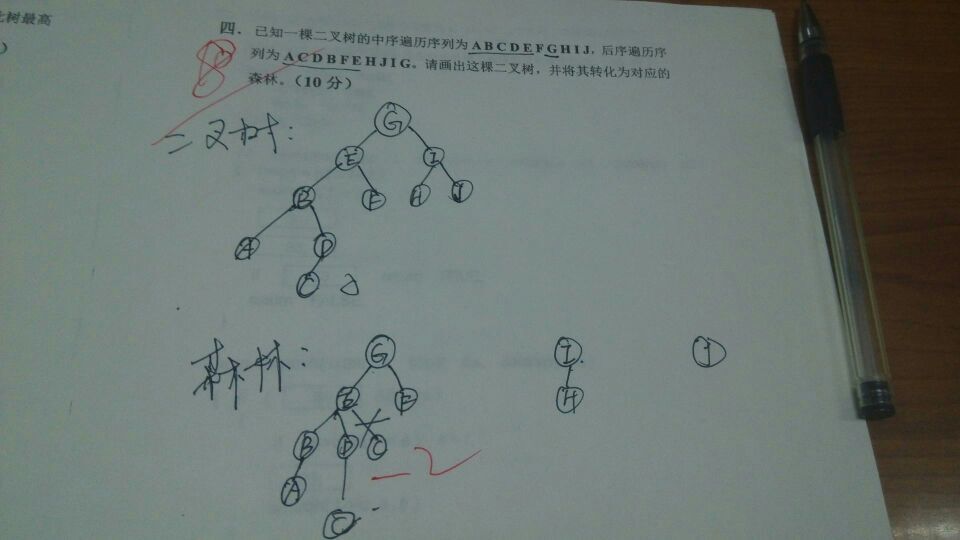 七树最高
）
四． 已知一棵二叉树的中序遍历序列为 ABCDEFGHIJ，后序遍历序
列为 ACDBFEHJIG。请画出这棵二叉树，并将其转化为对应的
森林。（10 分）
8
二叉树：
G
E I
B F H J
A D
C
森林：
G I J
E F H
B D C
A
-2
C